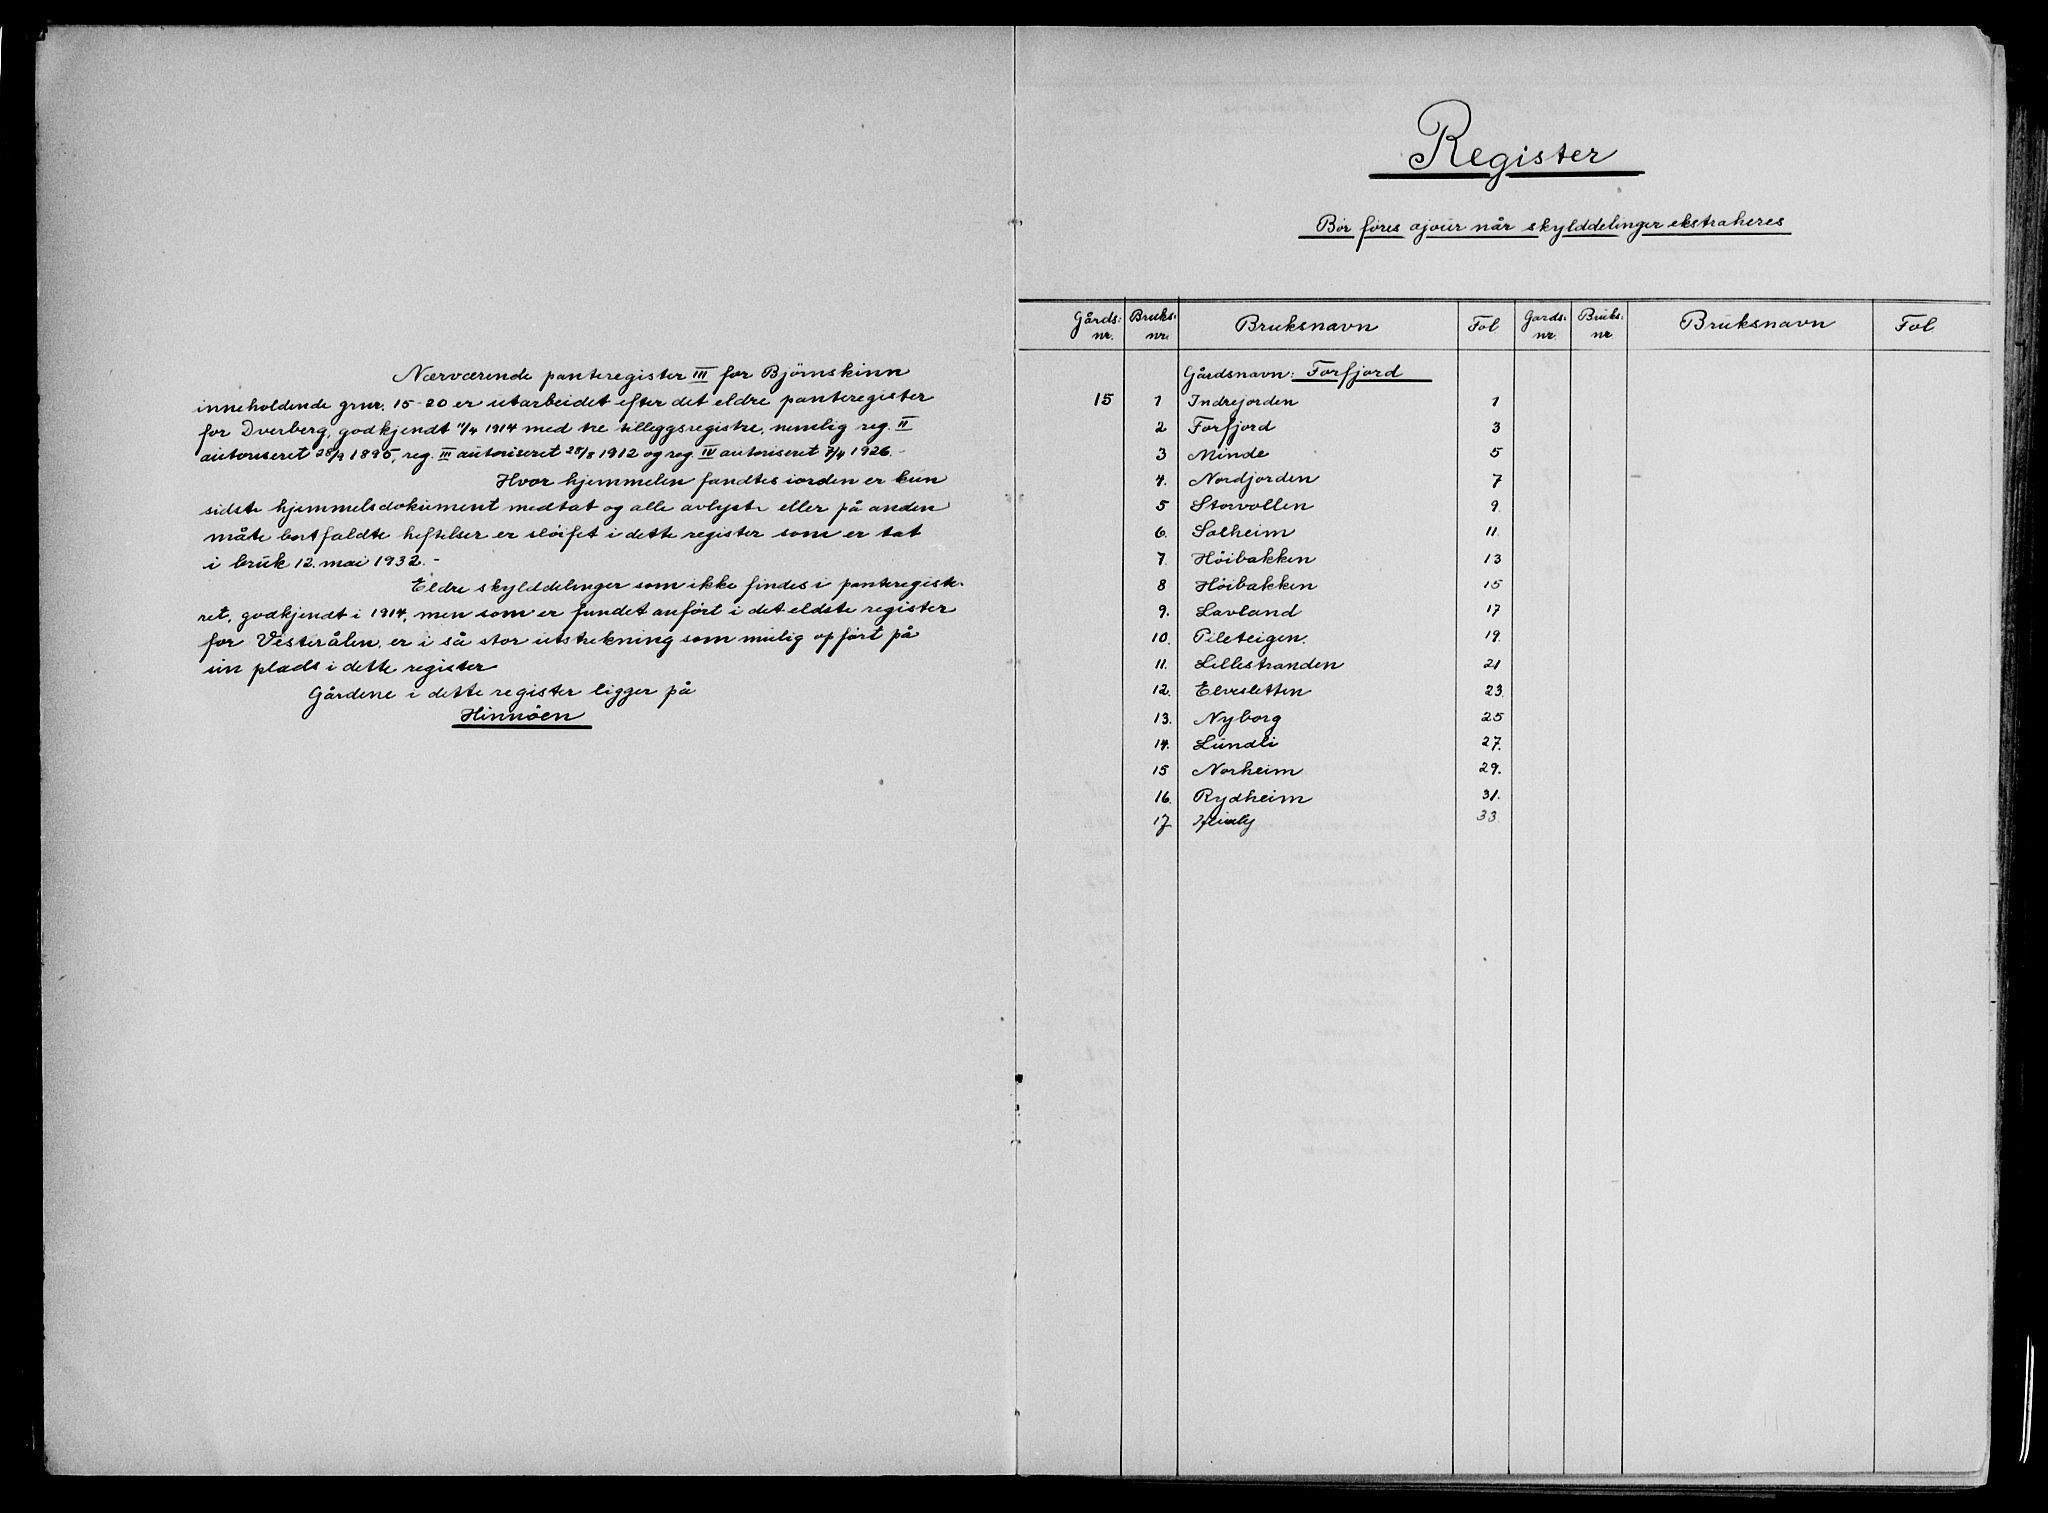 Nærværende panteregister III for Björnskinn
inneholdende grnr. 15-20 er utarbeidet efter det eldre panteregister
for Dverberg, godkjendt 1/4 1914 med tre tilleggsregistre, nemlig reg. II
autoriseret 28/9 1895, reg. III autoriseret 28/8 1912 og reg IV autoriseret 7/4 1926.-
Hvor hjemmelen fandtes iorden er kun
sidste hjemmelsdokument medtat og alle avlyste eller på anden
måte bortfaldte heftelser er slöifet i dette register som er tat
i bruk 12. mai 1932.-
Eldre skylddelinger som ikke findes i panteregiste-
ret, godkjendt i 1914, men som er fundet anført i det eldste register
for Vesterålen, er i så stor utstrekning som mulig opført på
sin plads i dette register
Gårdene i dette register ligger på
Hinnöen
Register
Bör föres ajour når skylddelinger ekstraheres
Gårds: nr. Bruks: nr. Bruksnavn Fol Gards: nr. Bruks: nr. Bruksnavn Fol.
Gårdsnavn: Forfjord
15 1 Indrejorden 1
2 Forfjord 3
3 Minde 5
4. Nordjorden 7
5 Storvollen 9.
6. Solheim 11.
7. Höibakken 13
8 Höibakken 15
9. Lavland 17
10. Pileteigen. 19.
11. Lillestranden 21
12. Elvesletten 23.
13. Nyborg 25
14. Lundli 27.
15 Norheim 29.
16. Rydheim 31.
17 33.